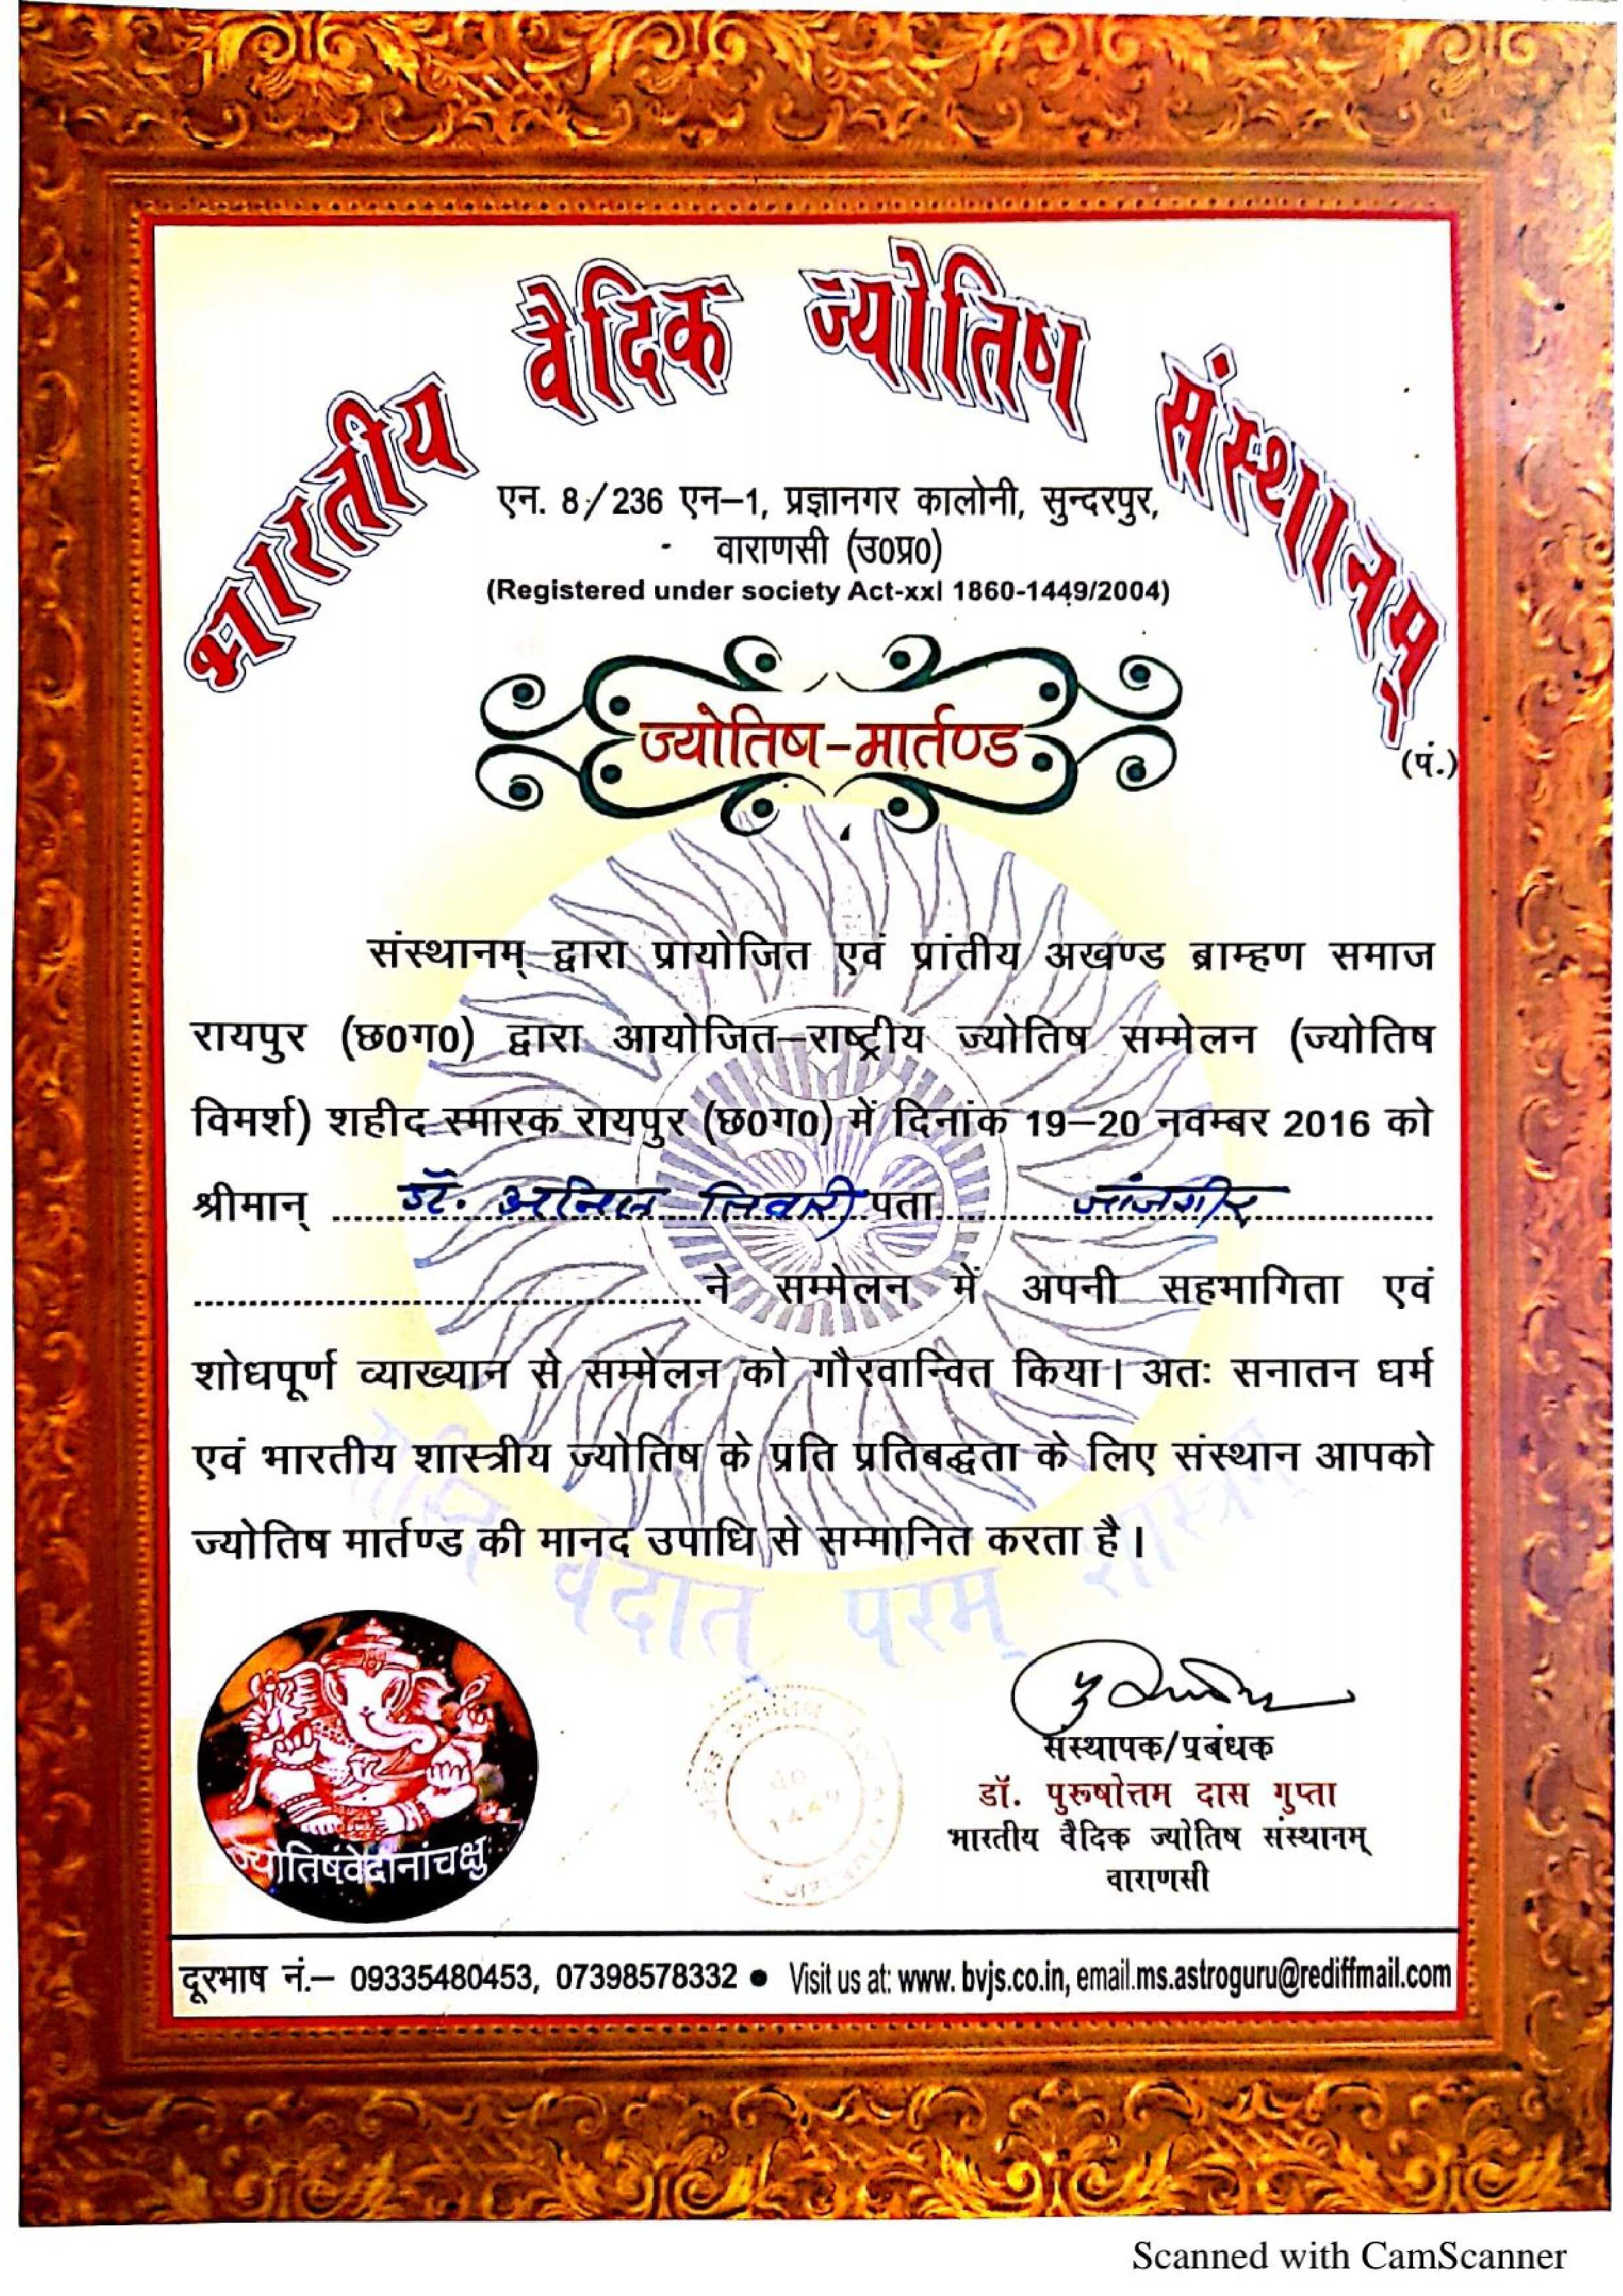 भारतीय वैदिक ज्योतिष संस्थानम्
(पं.)
एन. 8/236 एन–1, प्रज्ञानगर कालोनी, सुन्दरपुर,
वाराणसी (उ0प्र0)
(Registered under society Act-xxI 1860-1449/2004)
ज्योतिष-मार्तण्ड
संस्थानम् द्वारा प्रायोजित एवं प्रांतीय अखण्ड ब्राम्हण समाज
रायपुर (छ0ग0) द्वारा आयोजित–राष्ट्रीय ज्योतिष सम्मेलन (ज्योतिष
विमर्श) शहीद स्मारक रायपुर (छ0ग0) में दिनांक 19–20 नवम्बर 2016 को
श्रीमान् डॉ. अनिल तिवारी पता जांजगीर
ने सम्मेलन में अपनी सहभागिता एवं
शोधपूर्ण व्याख्यान से सम्मेलन को गौरवान्वित किया। अतः सनातन धर्म
एवं भारतीय शास्त्रीय ज्योतिष के प्रति प्रतिबद्धता के लिए संस्थान आपको
ज्योतिष मार्तण्ड की मानद उपाधि से सम्मानित करता है।
वेदात् परम् शास्त्रम्
ज्योतिषंवेदानांचक्षु
संस्थापक/प्रबंधक
डॉ. पुरूषोत्तम दास गुप्ता
भारतीय वैदिक ज्योतिष संस्थानम्
वाराणसी
दूरभाष नं.– 09335480453, 07398578332 ● Visit us at: www. bvjs.co.in, email.ms.astroguru@rediffmail.com
Scanned with CamScanner